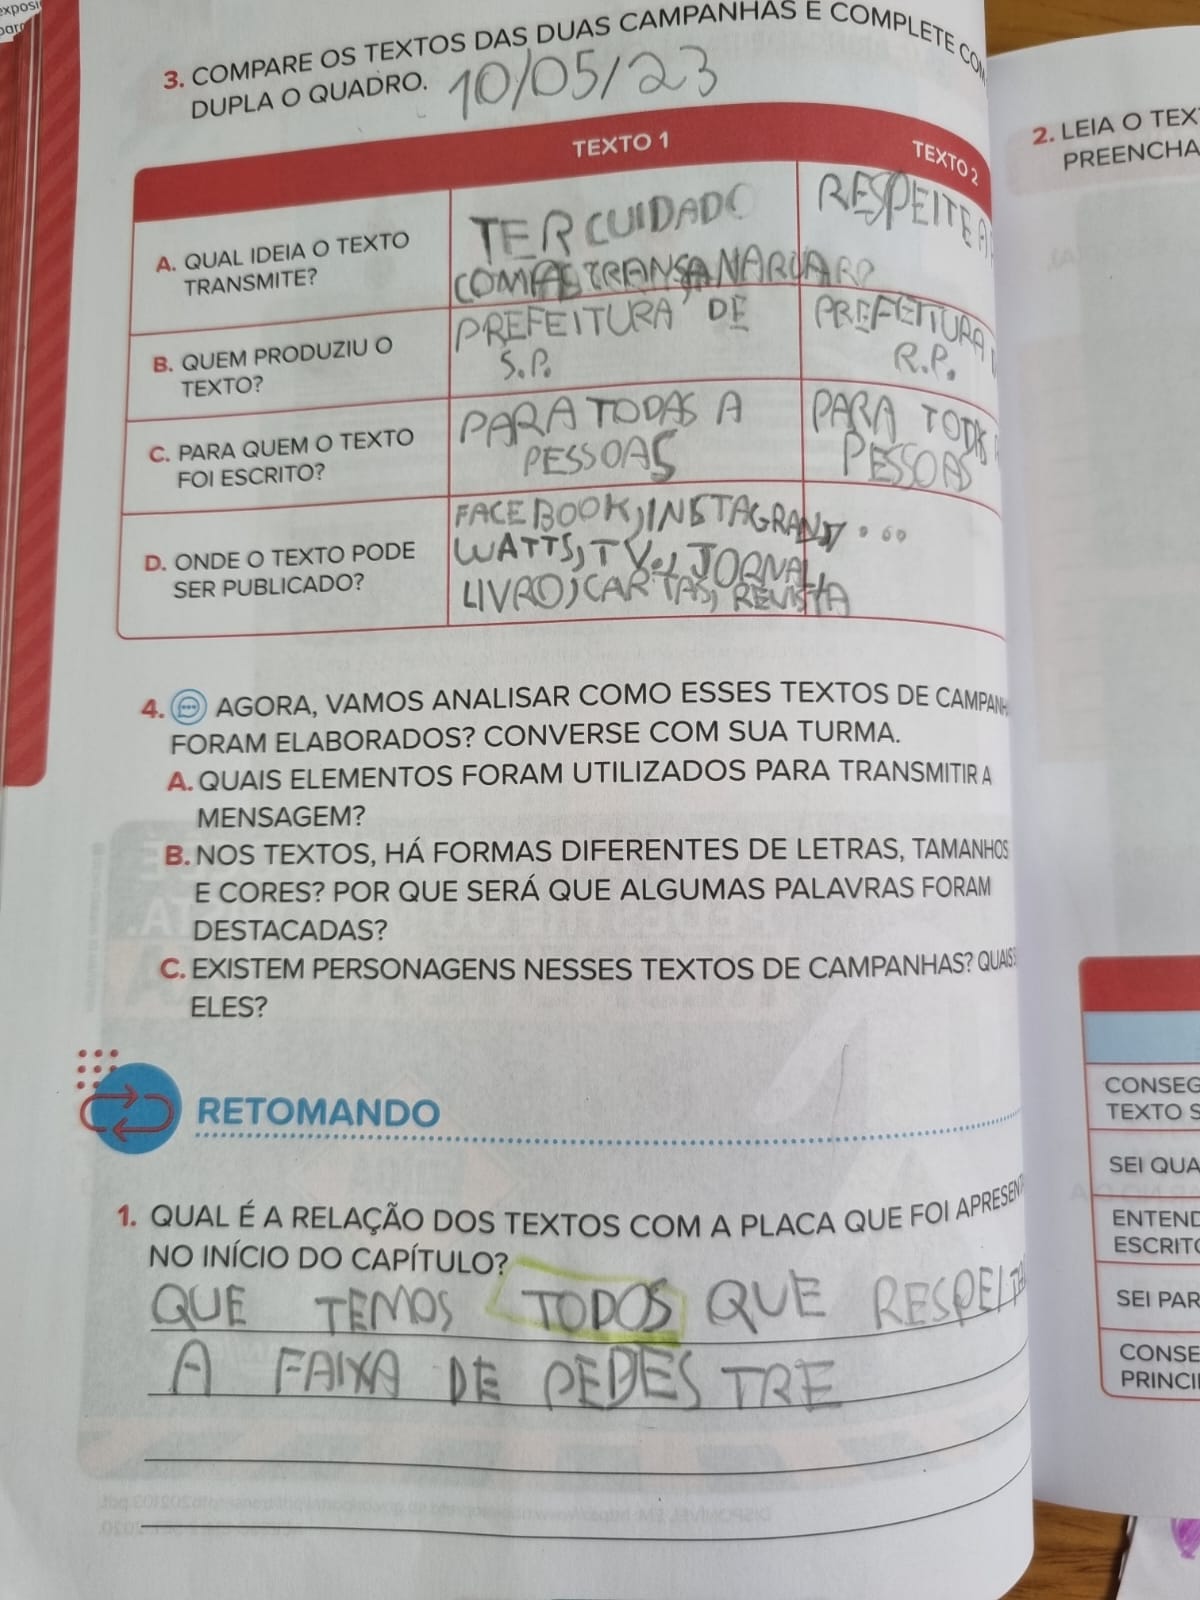 exposi
para
3. COMPARE OS TEXTOS DAS DUAS CAMPANHAS E COMPLETE COM
DUPLA O QUADRO. 10/05/23
TEXTO 1
TEXTO 2
A. QUAL IDEIA O TEXTO
TRANSMITE?
TER CUIDADO
RESPEITE A
B. QUEM PRODUZIU O
TEXTO?
PREFEITURA DE
S.P.
PREFEITURA
R.P.
C. PARA QUEM O TEXTO
FOI ESCRITO?
PARA TODAS A
PESSOAS
PARA TODAS
PESSOAS
D. ONDE O TEXTO PODE
SER PUBLICADO?
FACEBOOK, INSTAGRAN, ...
WATTS, TV., JORNAL,
LIVRO, CARTAS, REVISTA
4. AGORA, VAMOS ANALISAR COMO ESSES TEXTOS DE CAMPANH
FORAM ELABORADOS? CONVERSE COM SUA TURMA.
A. QUAIS ELEMENTOS FORAM UTILIZADOS PARA TRANSMITIR A
MENSAGEM?
B. NOS TEXTOS, HÁ FORMAS DIFERENTES DE LETRAS, TAMANHOS
E CORES? POR QUE SERÁ QUE ALGUMAS PALAVRAS FORAM
DESTACADAS?
C. EXISTEM PERSONAGENS NESSES TEXTOS DE CAMPANHAS? QUAIS
ELES?
RETOMANDO
1. QUAL É A RELAÇÃO DOS TEXTOS COM A PLACA QUE FOI APRESENT
NO INÍCIO DO CAPÍTULO?
QUE TEMOS TODOS QUE RESPEITA
A FAIXA DE PEDESTRE
2. LEIA O TEX
PREENCHA
CONSEG
TEXTO S
SEI QUA
ENTEND
ESCRITO
SEI PAR
CONSE
PRINCI